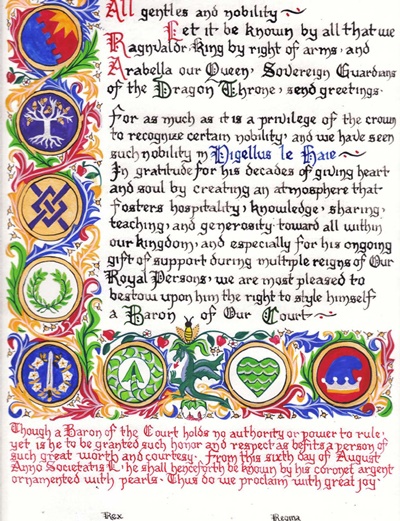 All gentles and nobility
Let it be known by all that we
Ragnvaldr King by right of arms, and
Arabella our Queen, Sovereign Guardians
of the Dragon Throne, send greetings.
For as much as it is a privilege of the crown
to recognize certain nobility, and we have seen
such nobility in Nigellus le Haie
In gratitude for his decades of giving heart
and soul by creating an atmosphere that
fosters hospitality, knowledge, sharing,
teaching, and generosity toward all within
our kingdom, and especially for his ongoing
gift of support during multiple reigns of Our
Royal Persons, we are most pleased to
bestow upon him the right to style himself
a Baron of Our Court
Though a Baron of the Court holds no authority or power to rule
yet is he to be granted such honor and respect as befits a person of
such great worth and courtesy. From this sixth day of August
Anno Societatis L he shall henceforth be known by his coronet argent
ornamented with pearls. Thus do we proclaim with great joy.
Rex
Regina